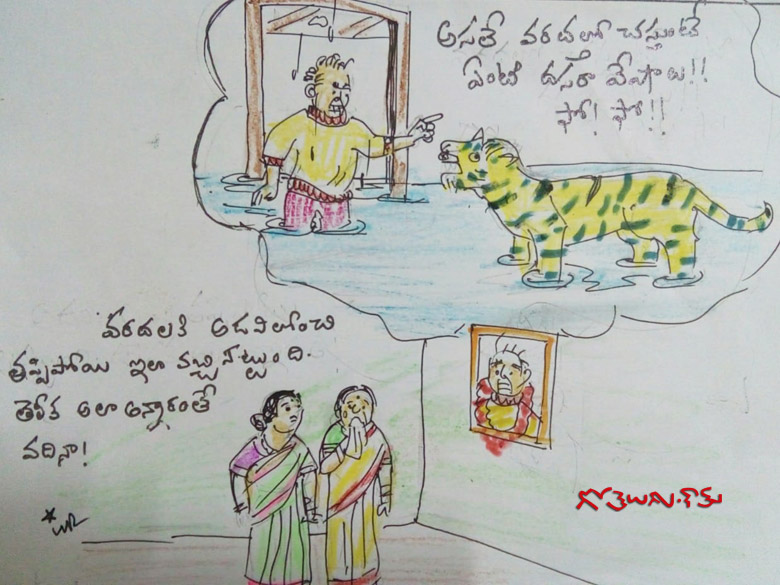 అసలే వరదల్తో చస్తుంటే
ఏంటీ దసరా వేషాలు!!
ఫో! ఫో!!
వరదలకి అడవిలోంచి
తప్పిపోయి ఇలా వచ్చినట్టుంది.
తెలీక అలా అన్నారంతే
వదినా!
గోతెలుగు.కామ్